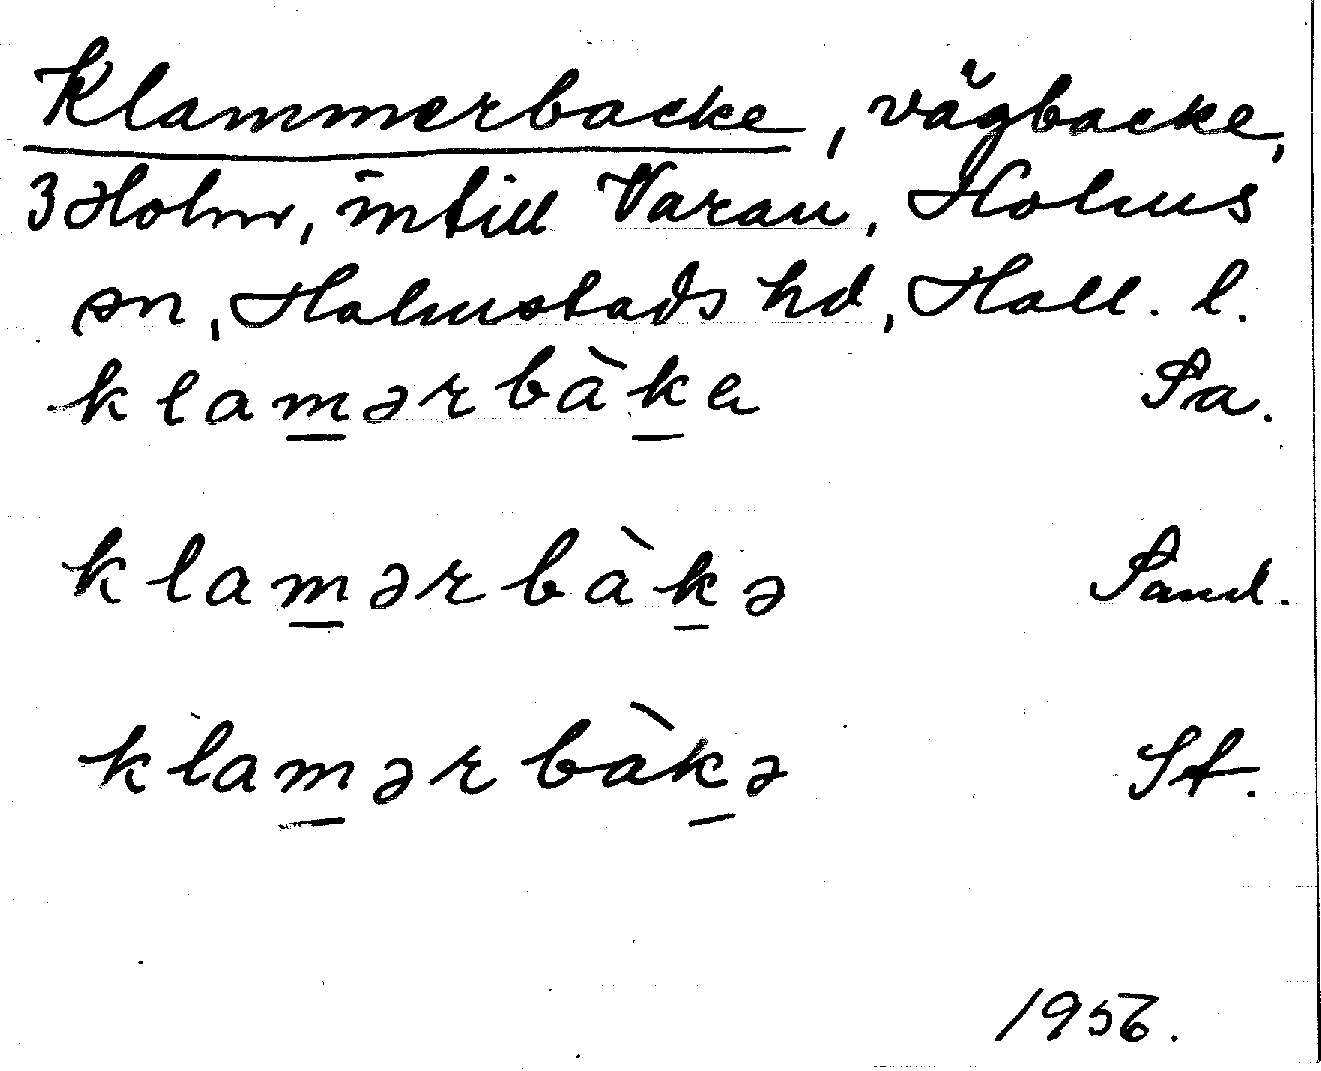 Klammerbacke, vägbacke,
3 Holm, intill Varan, Holms
sn, Halmstads hd, Hall. l.
klamərbàke Pa.
klamərbàkə Sand.
klamərbàkə St.
1956.